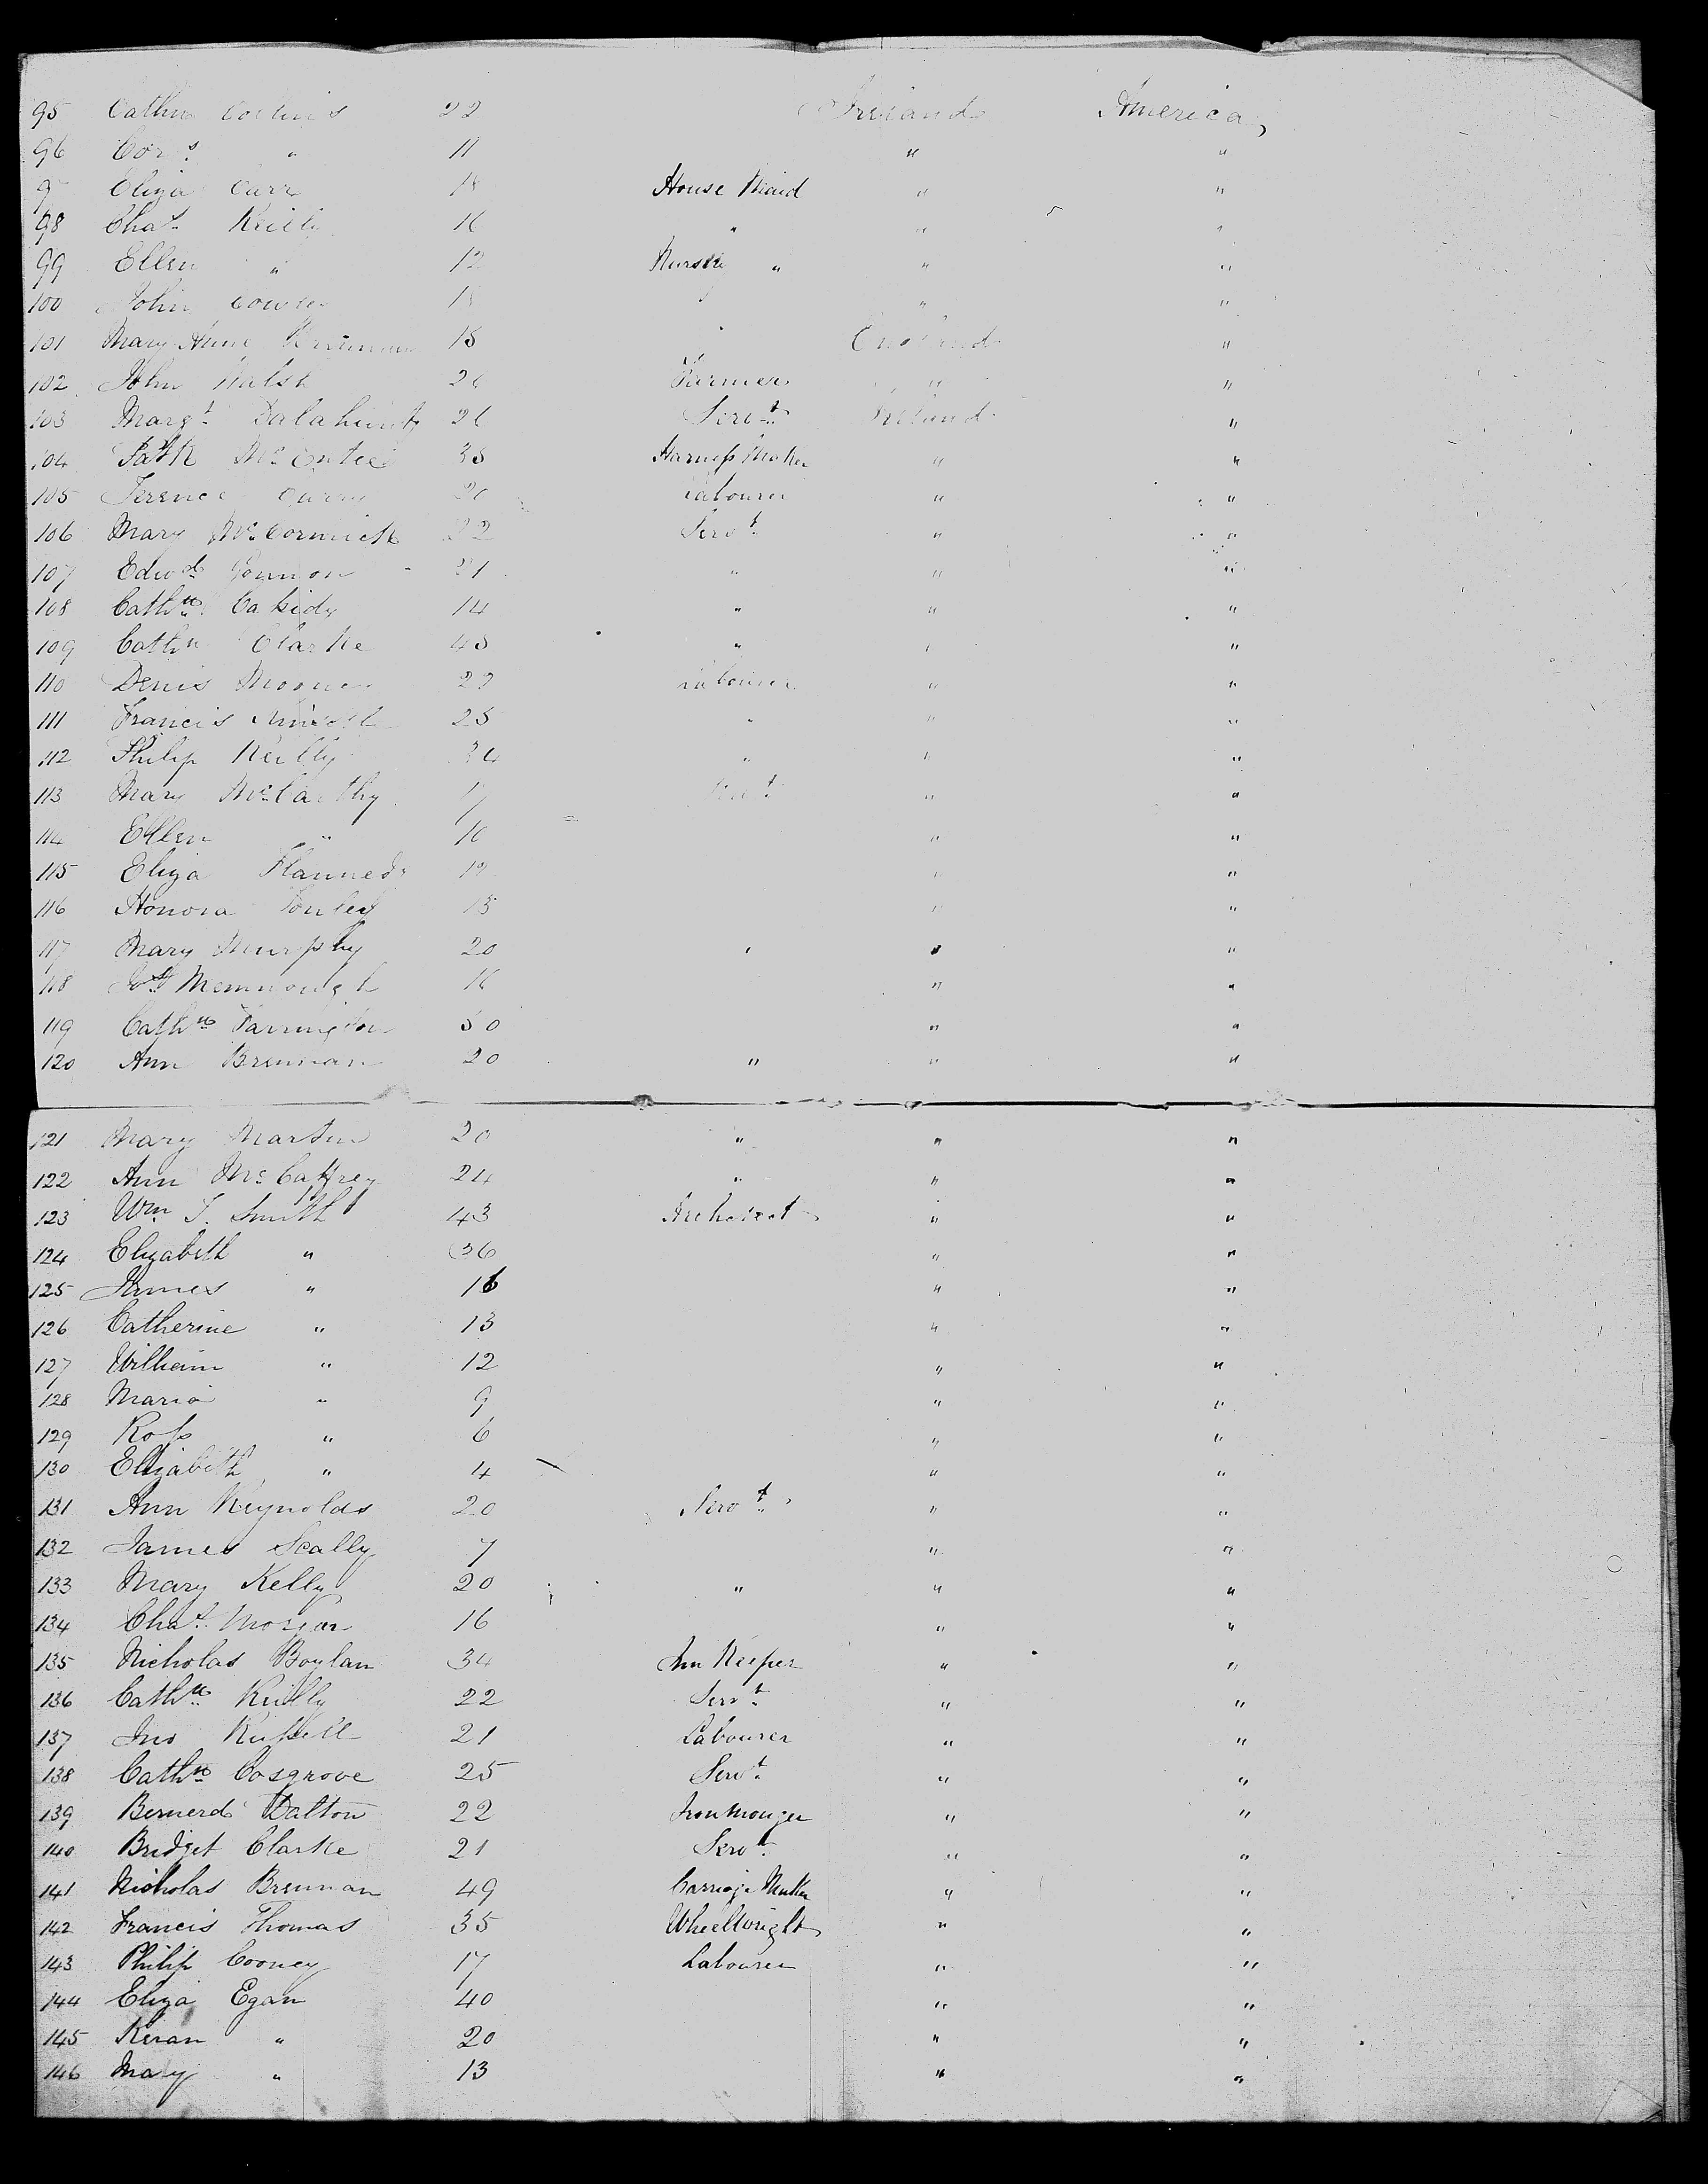 95 Cathne Collins 22 Ireland America,
96 Cors " 11 " "
97 Eliza Carr House Maid " "
98 Chas Reilly 16 " " "
99 Ellen " 12 Nursery " " "
100 John " "
101 Mary Anne 18 England "
102 John Walsh Farmer " "
103 Margt Dalahunty 26 Servt Ireland "
104 Patk McEntee 38 Harness Maker " "
105 Terence Curry 20 Labourer " "
106 Mary McCormick 22 Servt " "
107 Edwd Gannon 21 " " "
108 Cathne Cassidy 14 " " "
109 Cathn Clarke 45 " " "
110 Denis Mooney 22 Labourer " "
111 Francis 25 " " "
112 Philip Reilly 34 " " "
113 Mary McCarthy 17 Servt " "
114 Ellen " " "
115 Eliza " "
116 Honora " "
117 Mary Murphy 20 " " "
118 Jos 16 " "
119 Cathne Farrington 50 " "
120 Ann Brennan 20 " " "
121 Mary Martin 20 " " "
122 Ann McCaffrey 24 " " "
123 Wm J. Smith 43 Architect " "
124 Elizabeth " 36 " "
125 James " 16 " "
126 Catherine " 13 " "
127 William " 12 " "
128 Maria " 9 " "
129 Ross " 6 " "
130 Elizabeth " 4 " "
131 Ann Reynolds 20 Servt " "
132 James Scally 7 " "
133 Mary Kelly 20 " " "
134 Chas Morgan 16 " "
135 Nicholas Boylan 34 Inn Keeper " "
136 Cathne Reilly 22 Servt " "
137 Jno Russell 21 Labourer " "
138 Cathne Cosgrove 25 Servt " "
139 Bernerd Dalton 22 Ironmonger " "
140 Bridget Clarke 21 Servt " "
141 Nicholas Brennan 49 Carriage Maker " "
142 Francis Thomas 35 Wheelwright " "
143 Philip Cooney 17 Labourer " "
144 Eliza Egan 40 " "
145 Keran " 20 " "
146 Mary " 13 " "